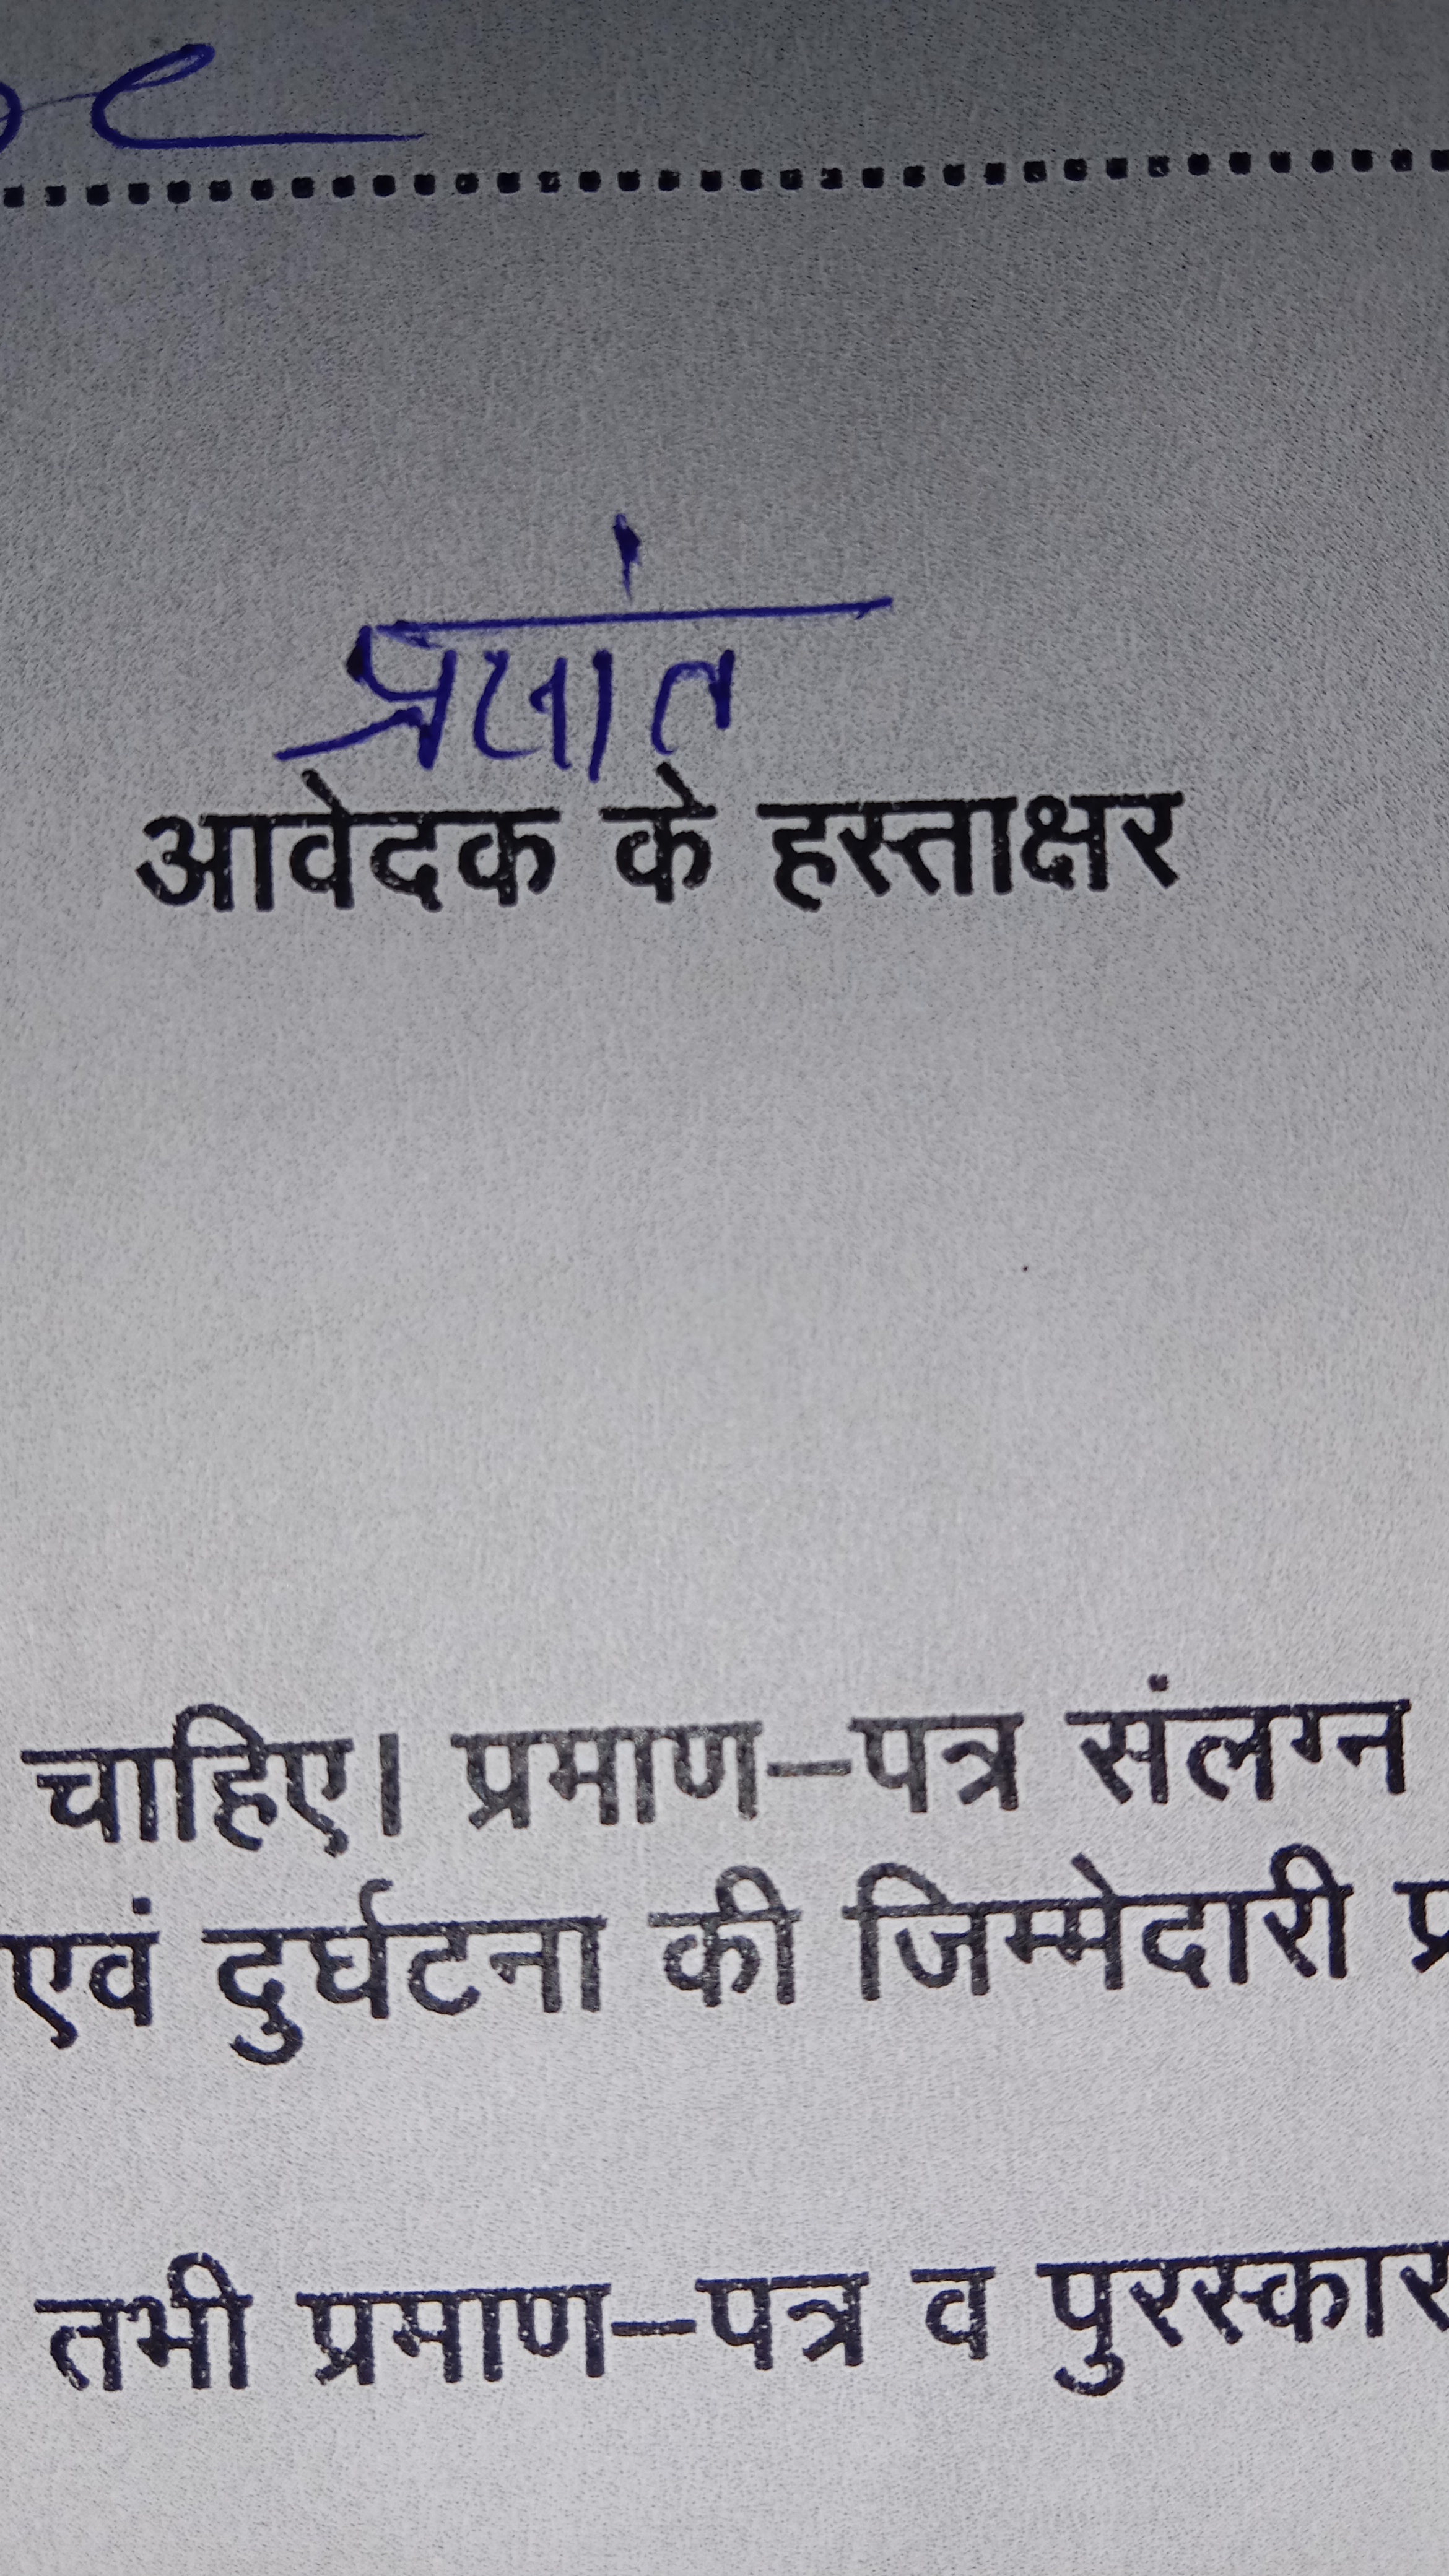 प्रसांत
आवेदक के हस्ताक्षर
चाहिए। प्रमाण–पत्र संलग्न
एवं दुर्घटना की जिम्मेदारी प्र
तभी प्रमाण–पत्र व पुरस्कार